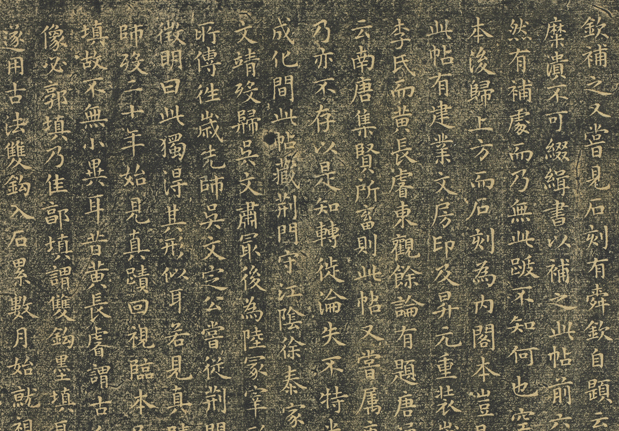 欽補之又嘗見石刻有舜欽自題云
糜潰不可綴緝書以補之此帖前六
然有補處而乃無此跋不知何也空
本後歸上方而石刻為內閣本豈
此帖有建業文房印及昇元重裝歲
李氏而黄長睿東觀餘論有題唐
云南唐集賢所畜則此帖又嘗属
乃亦不存以是知轉徙淪失不特
成化間此帖藏荆門守江陰徐泰家
文靖歿歸吳文肅最後為陸冢宰
所傳徃歲先師吳文定公嘗從荆門
徵明曰此獨得其形似耳若見真
師歿二十年始見真蹟回視臨本
填故不無小異耳昔黄長睿謂古
像必郭填乃佳郭填謂雙鈎墨填
遂用古法雙鈎入石累數月始就視